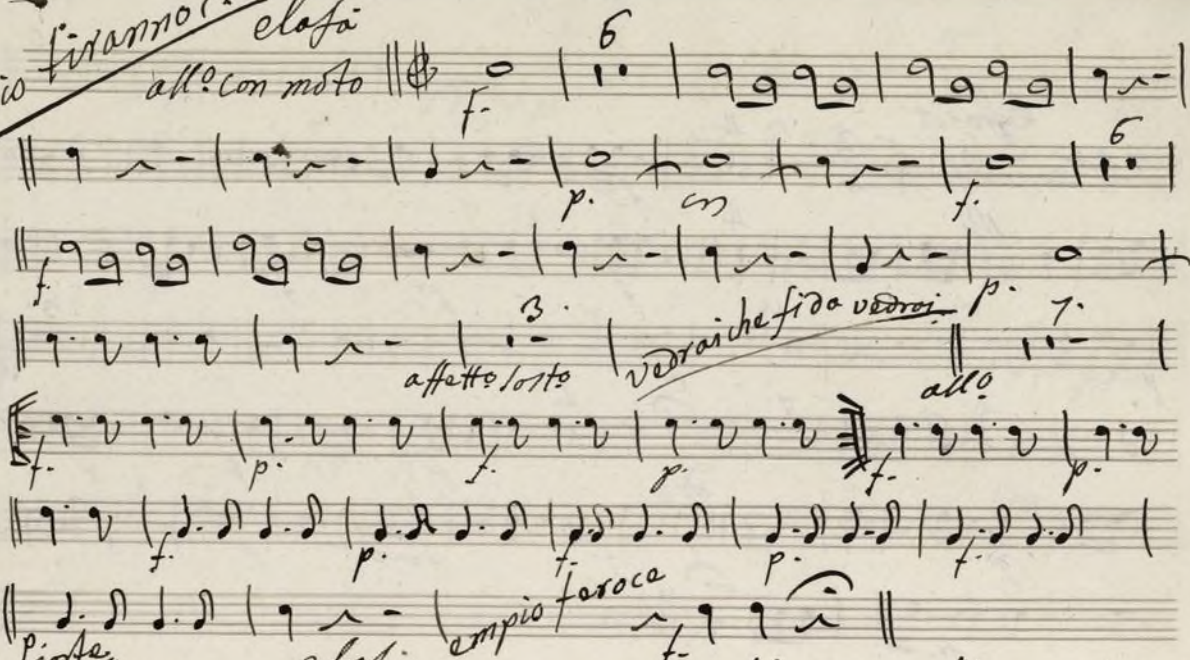 io tiranno elafà
allº con moto f. 6
p. f. 6
f. p.
3. affettº sostº vedrai che fida vedrai allº 7.
f. p. f. p. f. p.
f. p. f. p. f.
empio feroce f.